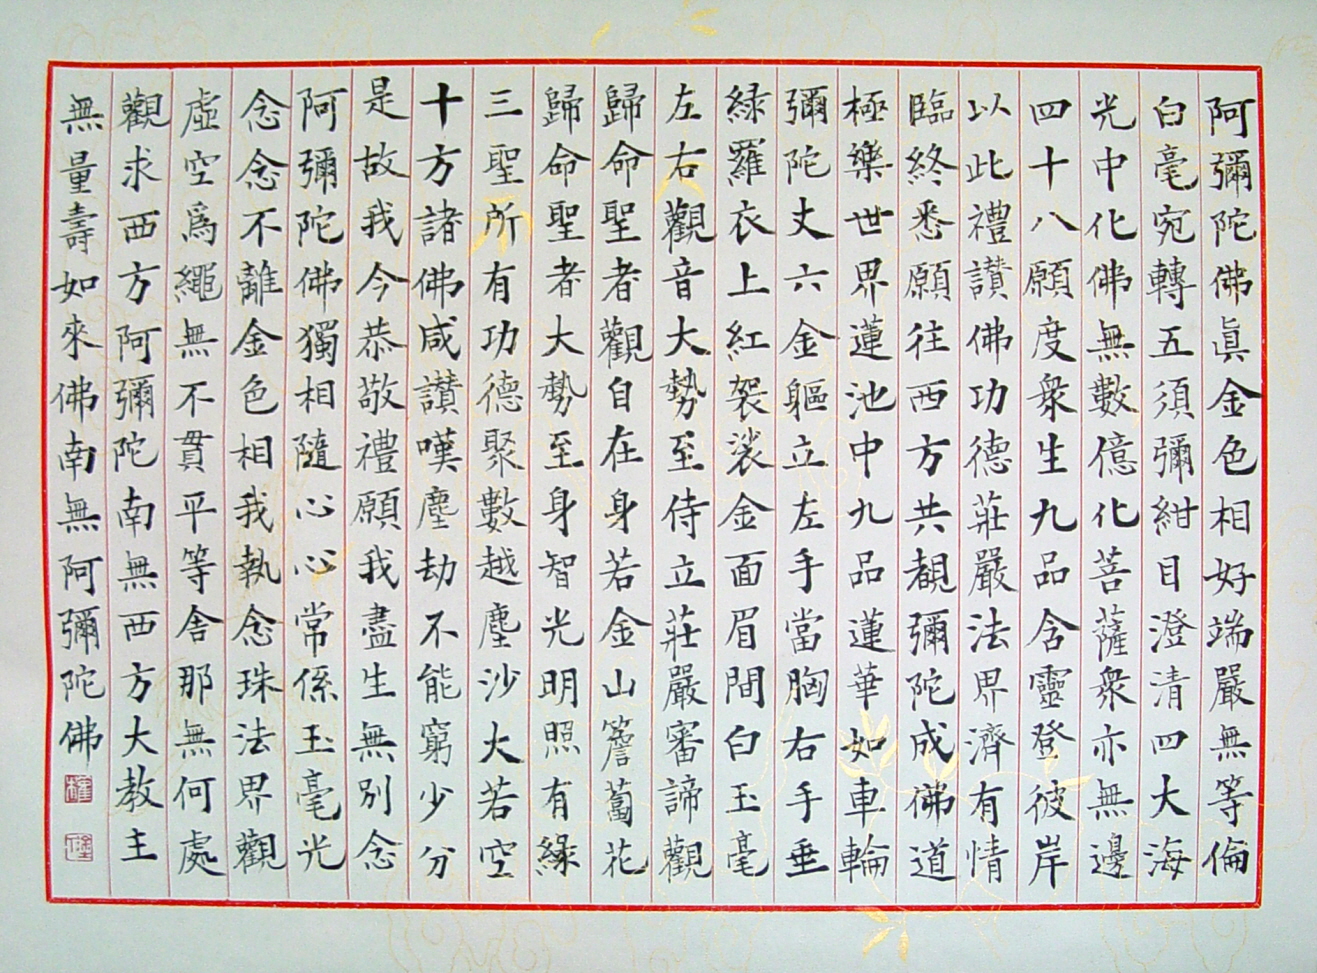 阿彌陀佛眞金色相好端嚴無等倫
白毫宛轉五須彌紺目澄清四大海
光中化佛無數億化菩薩衆亦無邊
四十八願度衆生九品含靈登彼岸
以此禮讃佛功德莊嚴法界濟有情
臨終悉願往西方共覩彌陀成佛道
極樂世界蓮池中九品蓮華如車輪
彌陀丈六金軀立左手當胸右手垂
緑羅衣上紅袈裟金面眉間白玉毫
左右觀音大勢至侍立莊嚴審諦觀
歸命聖者觀自在身若金山簷蔔花
歸命聖者大勢至身智光明照有緣
三聖所有功德聚數越塵沙大若空
十方諸佛咸讃嘆塵劫不能窮少分
是故我今恭敬禮願我盡生無別念
阿彌陀佛獨相隨心心常係玉毫光
念念不離金色相我執念珠法界觀
虛空爲繩無不貫平等舍那無何處
觀求西方阿彌陀南無西方大教主
無量壽如來佛南無阿彌陀佛